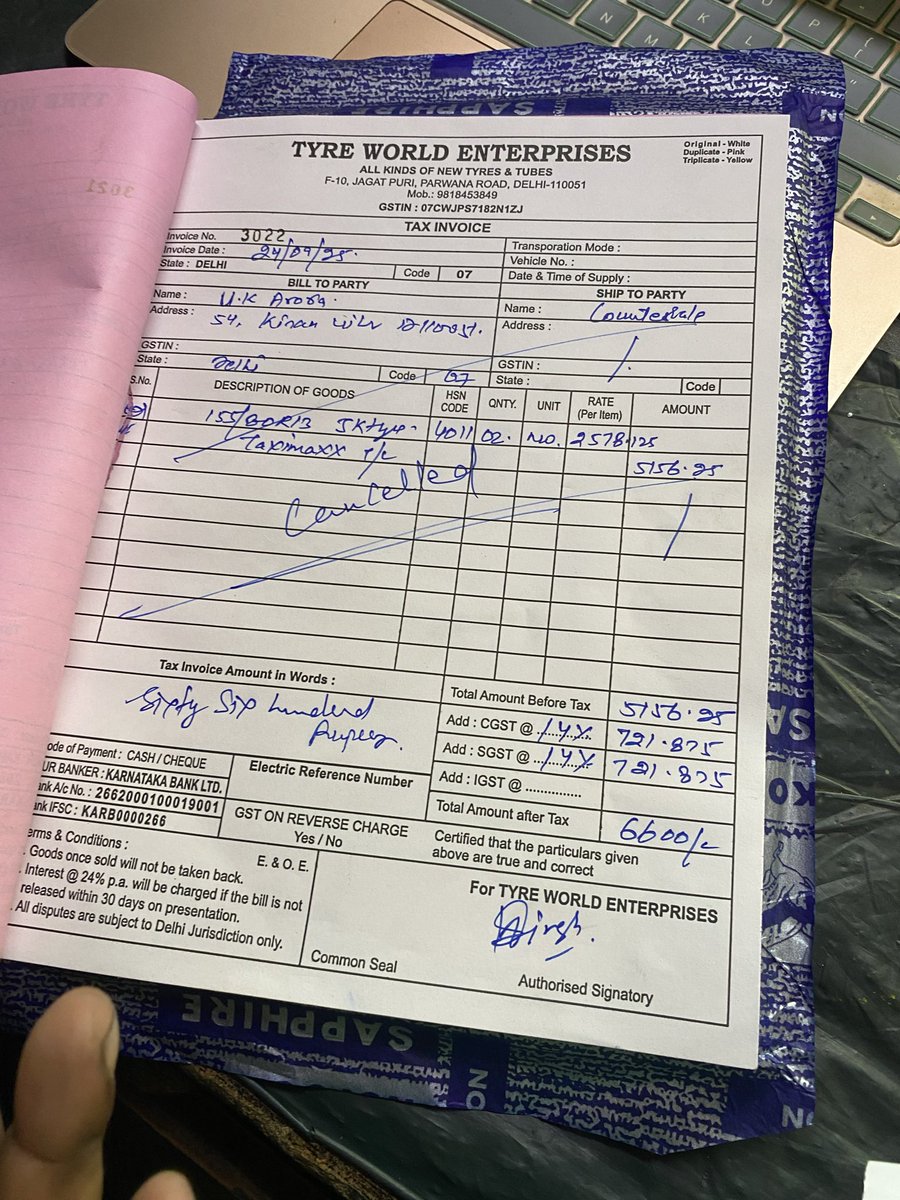 Original - White
Duplicate - Pink
Triplicate - Yellow
TYRE WORLD ENTERPRISES
ALL KINDS OF NEW TYRES & TUBES
F-10, JAGAT PURI, PARWANA ROAD, DELHI-110051
Mob.: 9818453849
GSTIN : 07CWJPS7182N1ZJ
TAX INVOICE
Invoice No. 3022
Invoice Date : 24/09/25.
State : DELHI Code 07
Transporation Mode :
Vehicle No. :
Date & Time of Supply :
BILL TO PARTY
Name : U.K Arora.
Address : 54, Kiran
GSTIN :
State : Code 07
SHIP TO PARTY
Name : Countersale
Address :
GSTIN :
State : Code
S.No. DESCRIPTION OF GOODS HSN CODE QNTY. UNIT RATE (Per Item) AMOUNT
155/80R13 JK tyre 4011 02. No. 2578.125
Taximaxx T/L 5156.25
Cancelled
Tax Invoice Amount in Words :
Sixty Six hundred
Rupees.
Total Amount Before Tax 5156.25
Add : CGST @ 14% 721.875
Add : SGST @ 14% 721.875
Add : IGST @ ...............
Total Amount after Tax 6600/-
ode of Payment : CASH / CHEQUE
UR BANKER : KARNATAKA BANK LTD.
ank A/c No. : 2662000100019001
ank IFSC : KARB0000266
Electric Reference Number
GST ON REVERSE CHARGE
Yes / No
Certified that the particulars given
above are true and correct
erms & Conditions :
E. & O. E.
. Goods once sold will not be taken back.
. Interest @ 24% p.a. will be charged if the bill is not
released within 30 days on presentation.
. All disputes are subject to Delhi Jurisdiction only.
Common Seal
For TYRE WORLD ENTERPRISES
Authorised Signatory
SAPPHIRE
SAPPHIRE